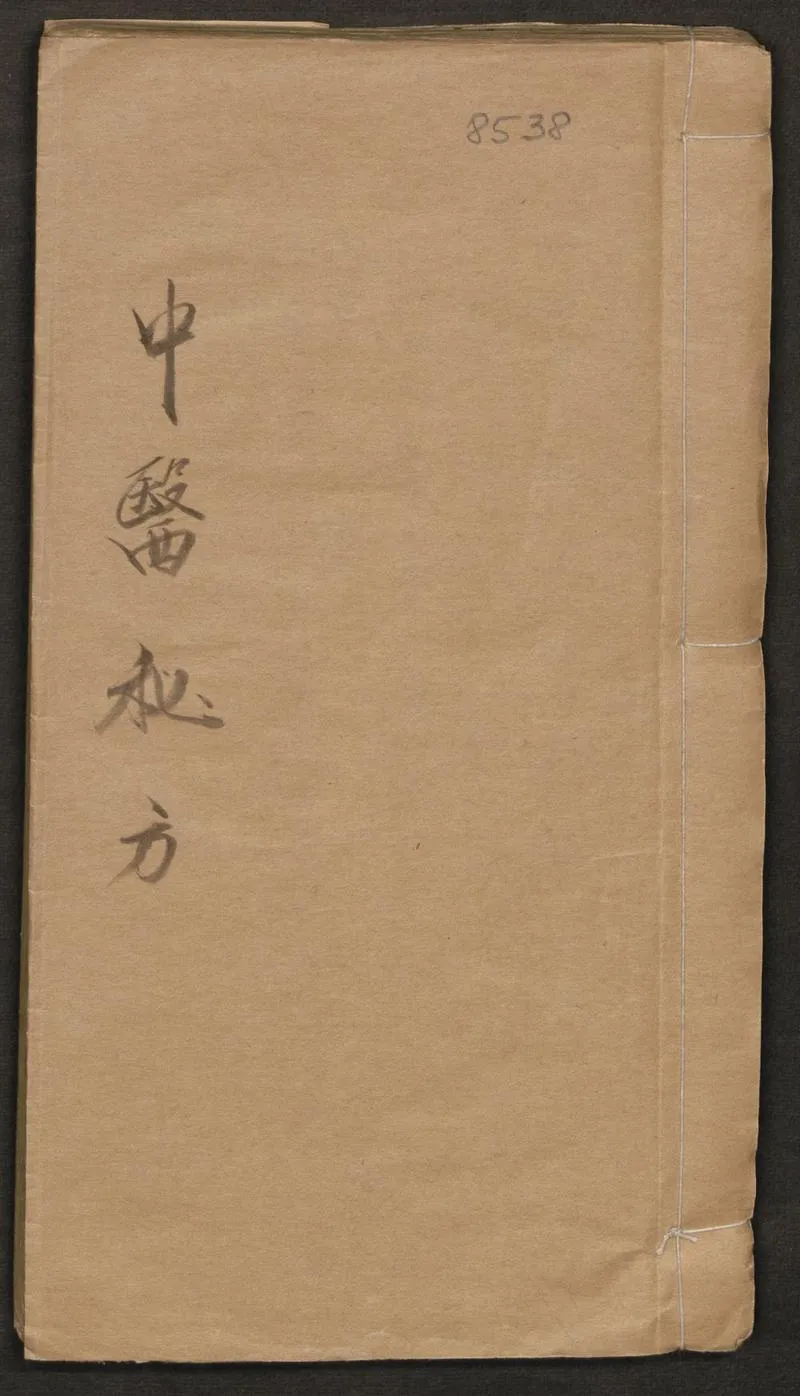 8538
中醫秘方